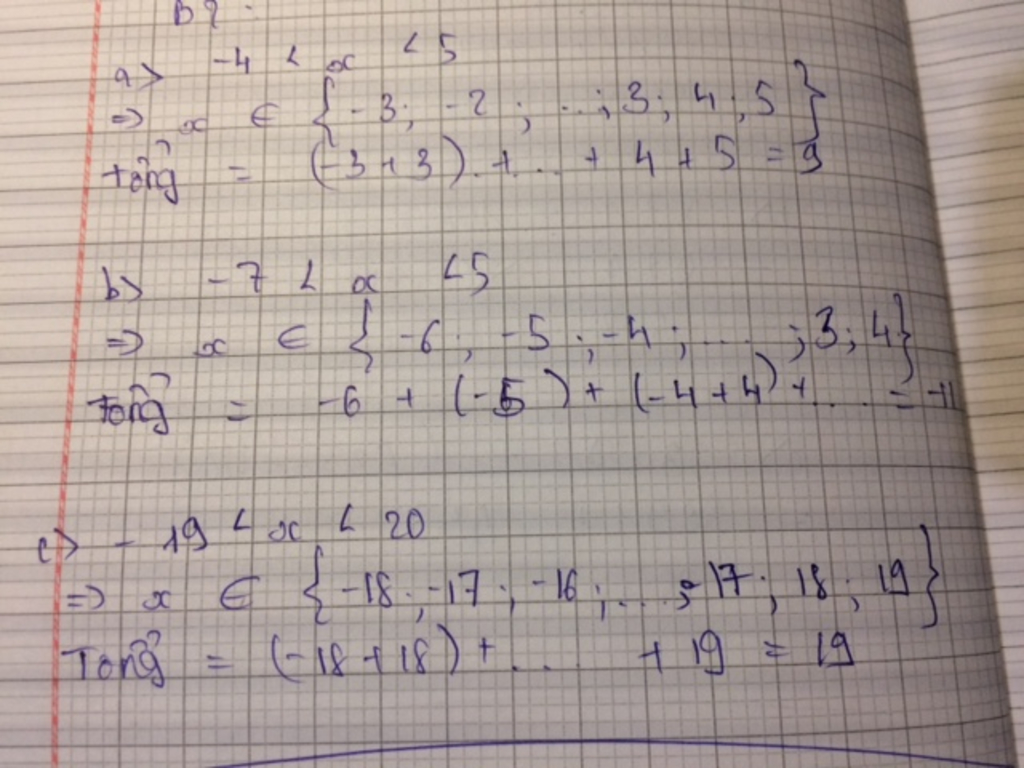 a> -4 < x < 5
=> x ∈ { -3; -2 ; ...; 3; 4; 5 }
tổng = (-3+3) + ... + 4 + 5 = 9
b> -7 < x < 5
=> x ∈ { -6 ; -5 ; -4 ; .... ; 3 ; 4 }
tổng = -6 + (-5) + (-4+4) + .... = -11
c> - 19 < x < 20
=> x ∈ { -18 ; -17 ; -16 ; ... ; 17 ; 18 ; 19 }
Tổng = (-18+18) + ... + 19 = 19